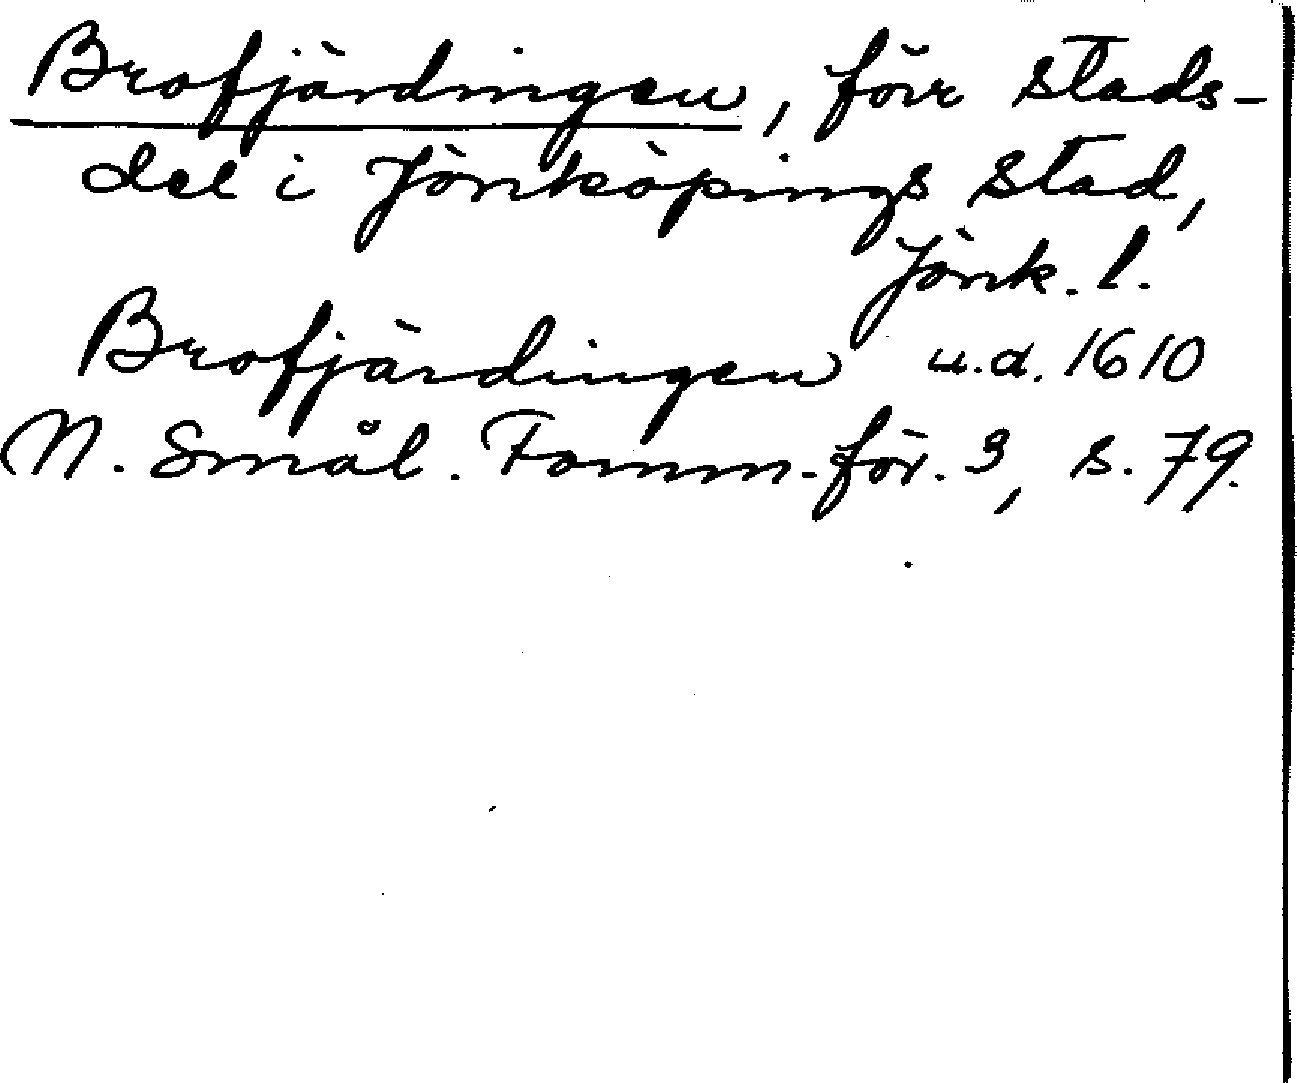 Brofjärdingen, förr stads-
del i Jönköpings stad,
Jönk. l.
Brofjärdingen u.d. 1610
N. Smål. Fornm.för. 3, s. 79.